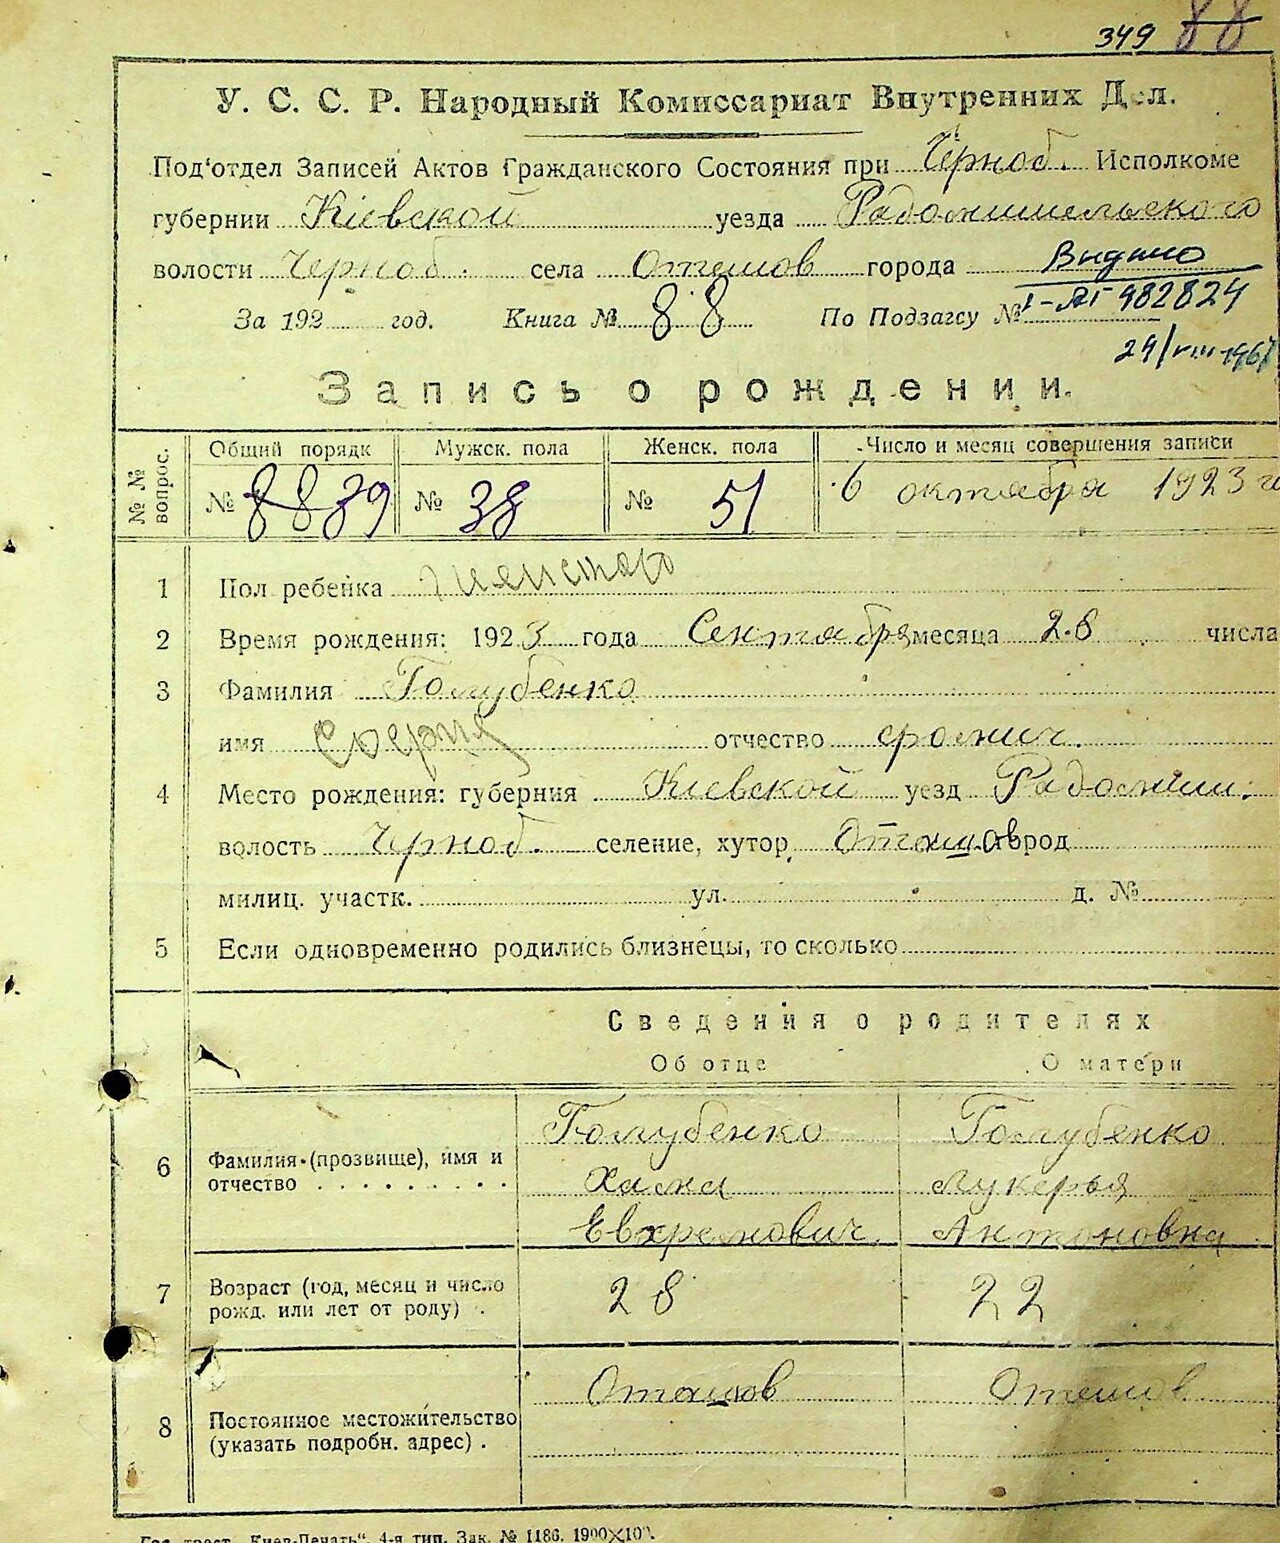 349 88
У. С. С. Р. Народный Комиссариат Внутренних Дел.
Под'отдел Записей Актов Гражданского Состояния при Черноб. Исполкоме
губернии Кіевской уезда Радомишельского
волости Черноб. села Оташов города Видано
За 192 год. Книга № 88 По Подзагсу № I-АГ 982824
24/VIII-1967
Запись о рождении.
№ № вопрос. Общий порядк Мужск. пола Женск. пола Число и месяц совершения записи
№ 88 89 № 38 № 51 6 октября 1923 г
1 Пол ребенка женского
2 Время рождения: 1923 года Сентября месяца 28 числа
3 Фамилия Голубенко
имя отчество
4 Место рождения: губерния Кіевской уезд Радомиш.
волость Черноб. селение, хутор Оташов город
милиц. участк. ул. д. №
5 Если одновременно родились близнецы, то сколько
Сведения о родителях
Об отце О матери
Голубенко Голубенко
6 Фамилия (прозвище), имя и отчество Лукерья
Евхремович Антоновна
7 Возраст (год, месяц и число рожд. или лет от роду) . 28 22
Оташов Оташов
8 Постоянное местожительство (указать подробн. адрес) .
Гос. трест „Киев-Печать“, 4-я тип. Зак. № 1186. 1900×100.